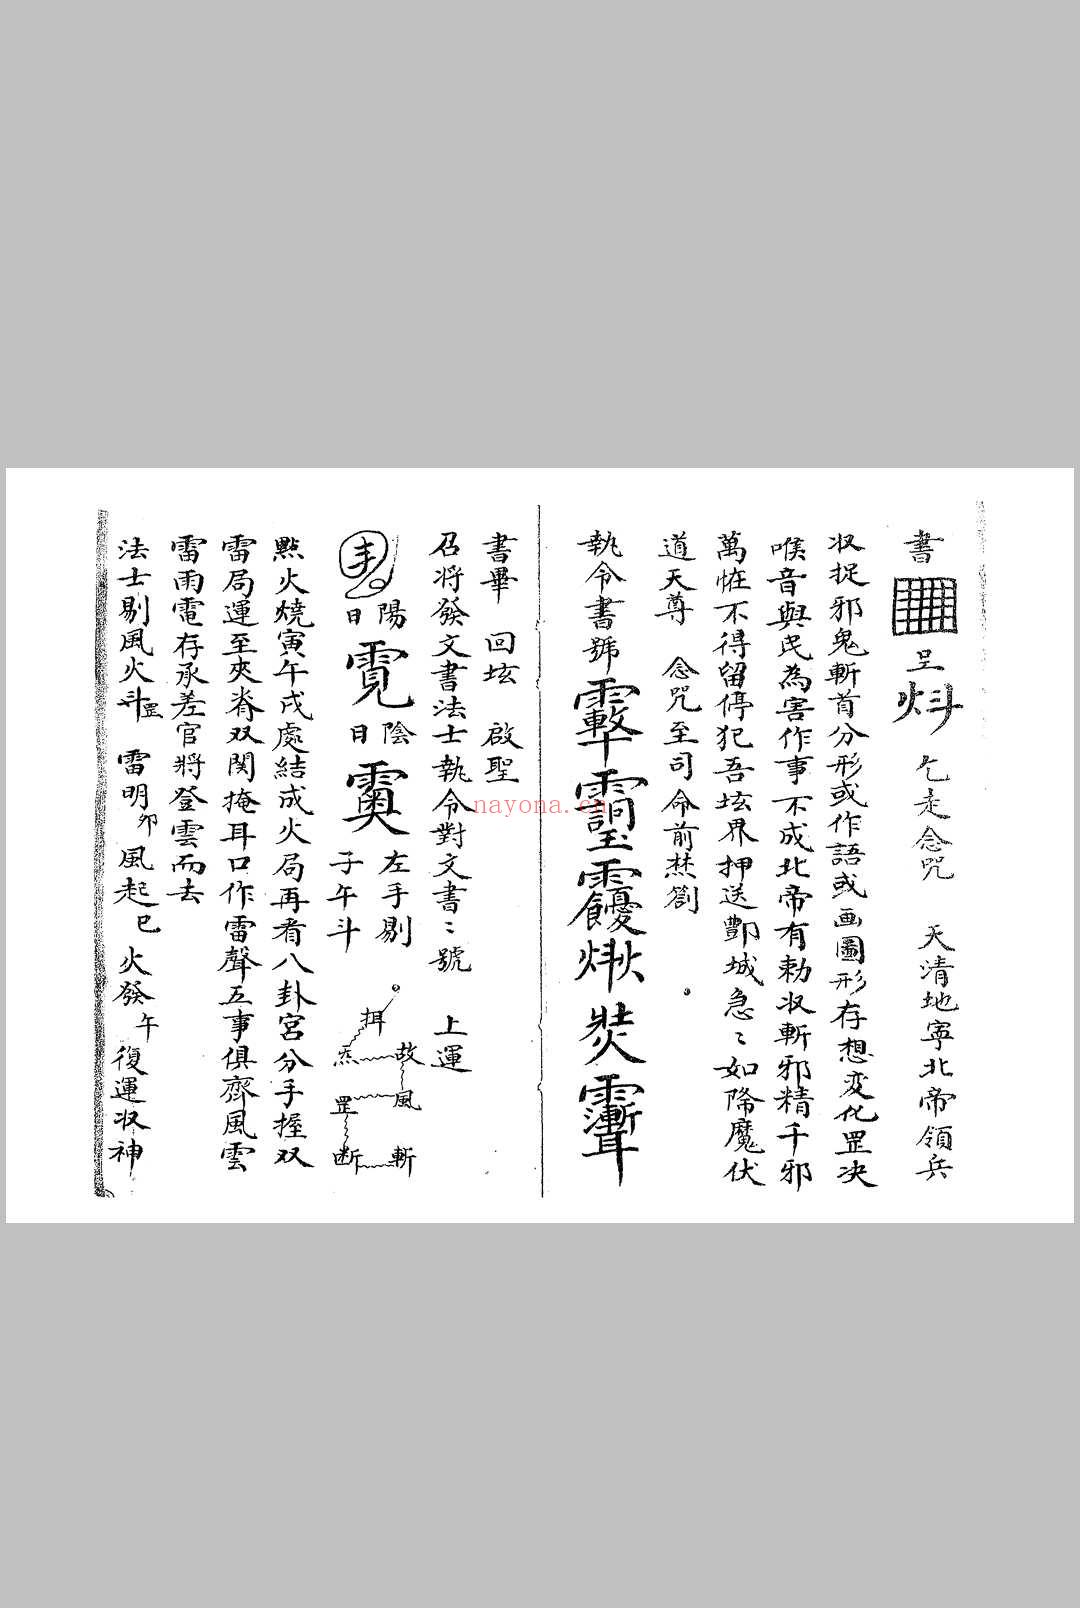 書 呈 㪺 乞走念咒 天清地寧北帝領兵
収捉邪鬼斬首分形或作語或画圖形存想変化罡决
喉音與民為害作事不成北帝有勅収斬邪精千邪
萬恠不得留停犯吾坛界押送酆城急〻如降魔伏
道天尊 念咒至司命前焚劄
執令書號
書畢 回坛 啟聖
召将發文書法士執令對文書〻號 上運
陽日 陰日 左手剔 子午斗
故 風 罡 断 斬
㸃火燒寅午戌處結成火局再看八卦宮分手握双
雷局運至夾脊双関掩耳口作雷聲五事俱齊風雲
雷雨電存承差官將登雲而去
法士剔風火斗罡 雷明卯 風起巳 火發午 復運収神
nayona.cn